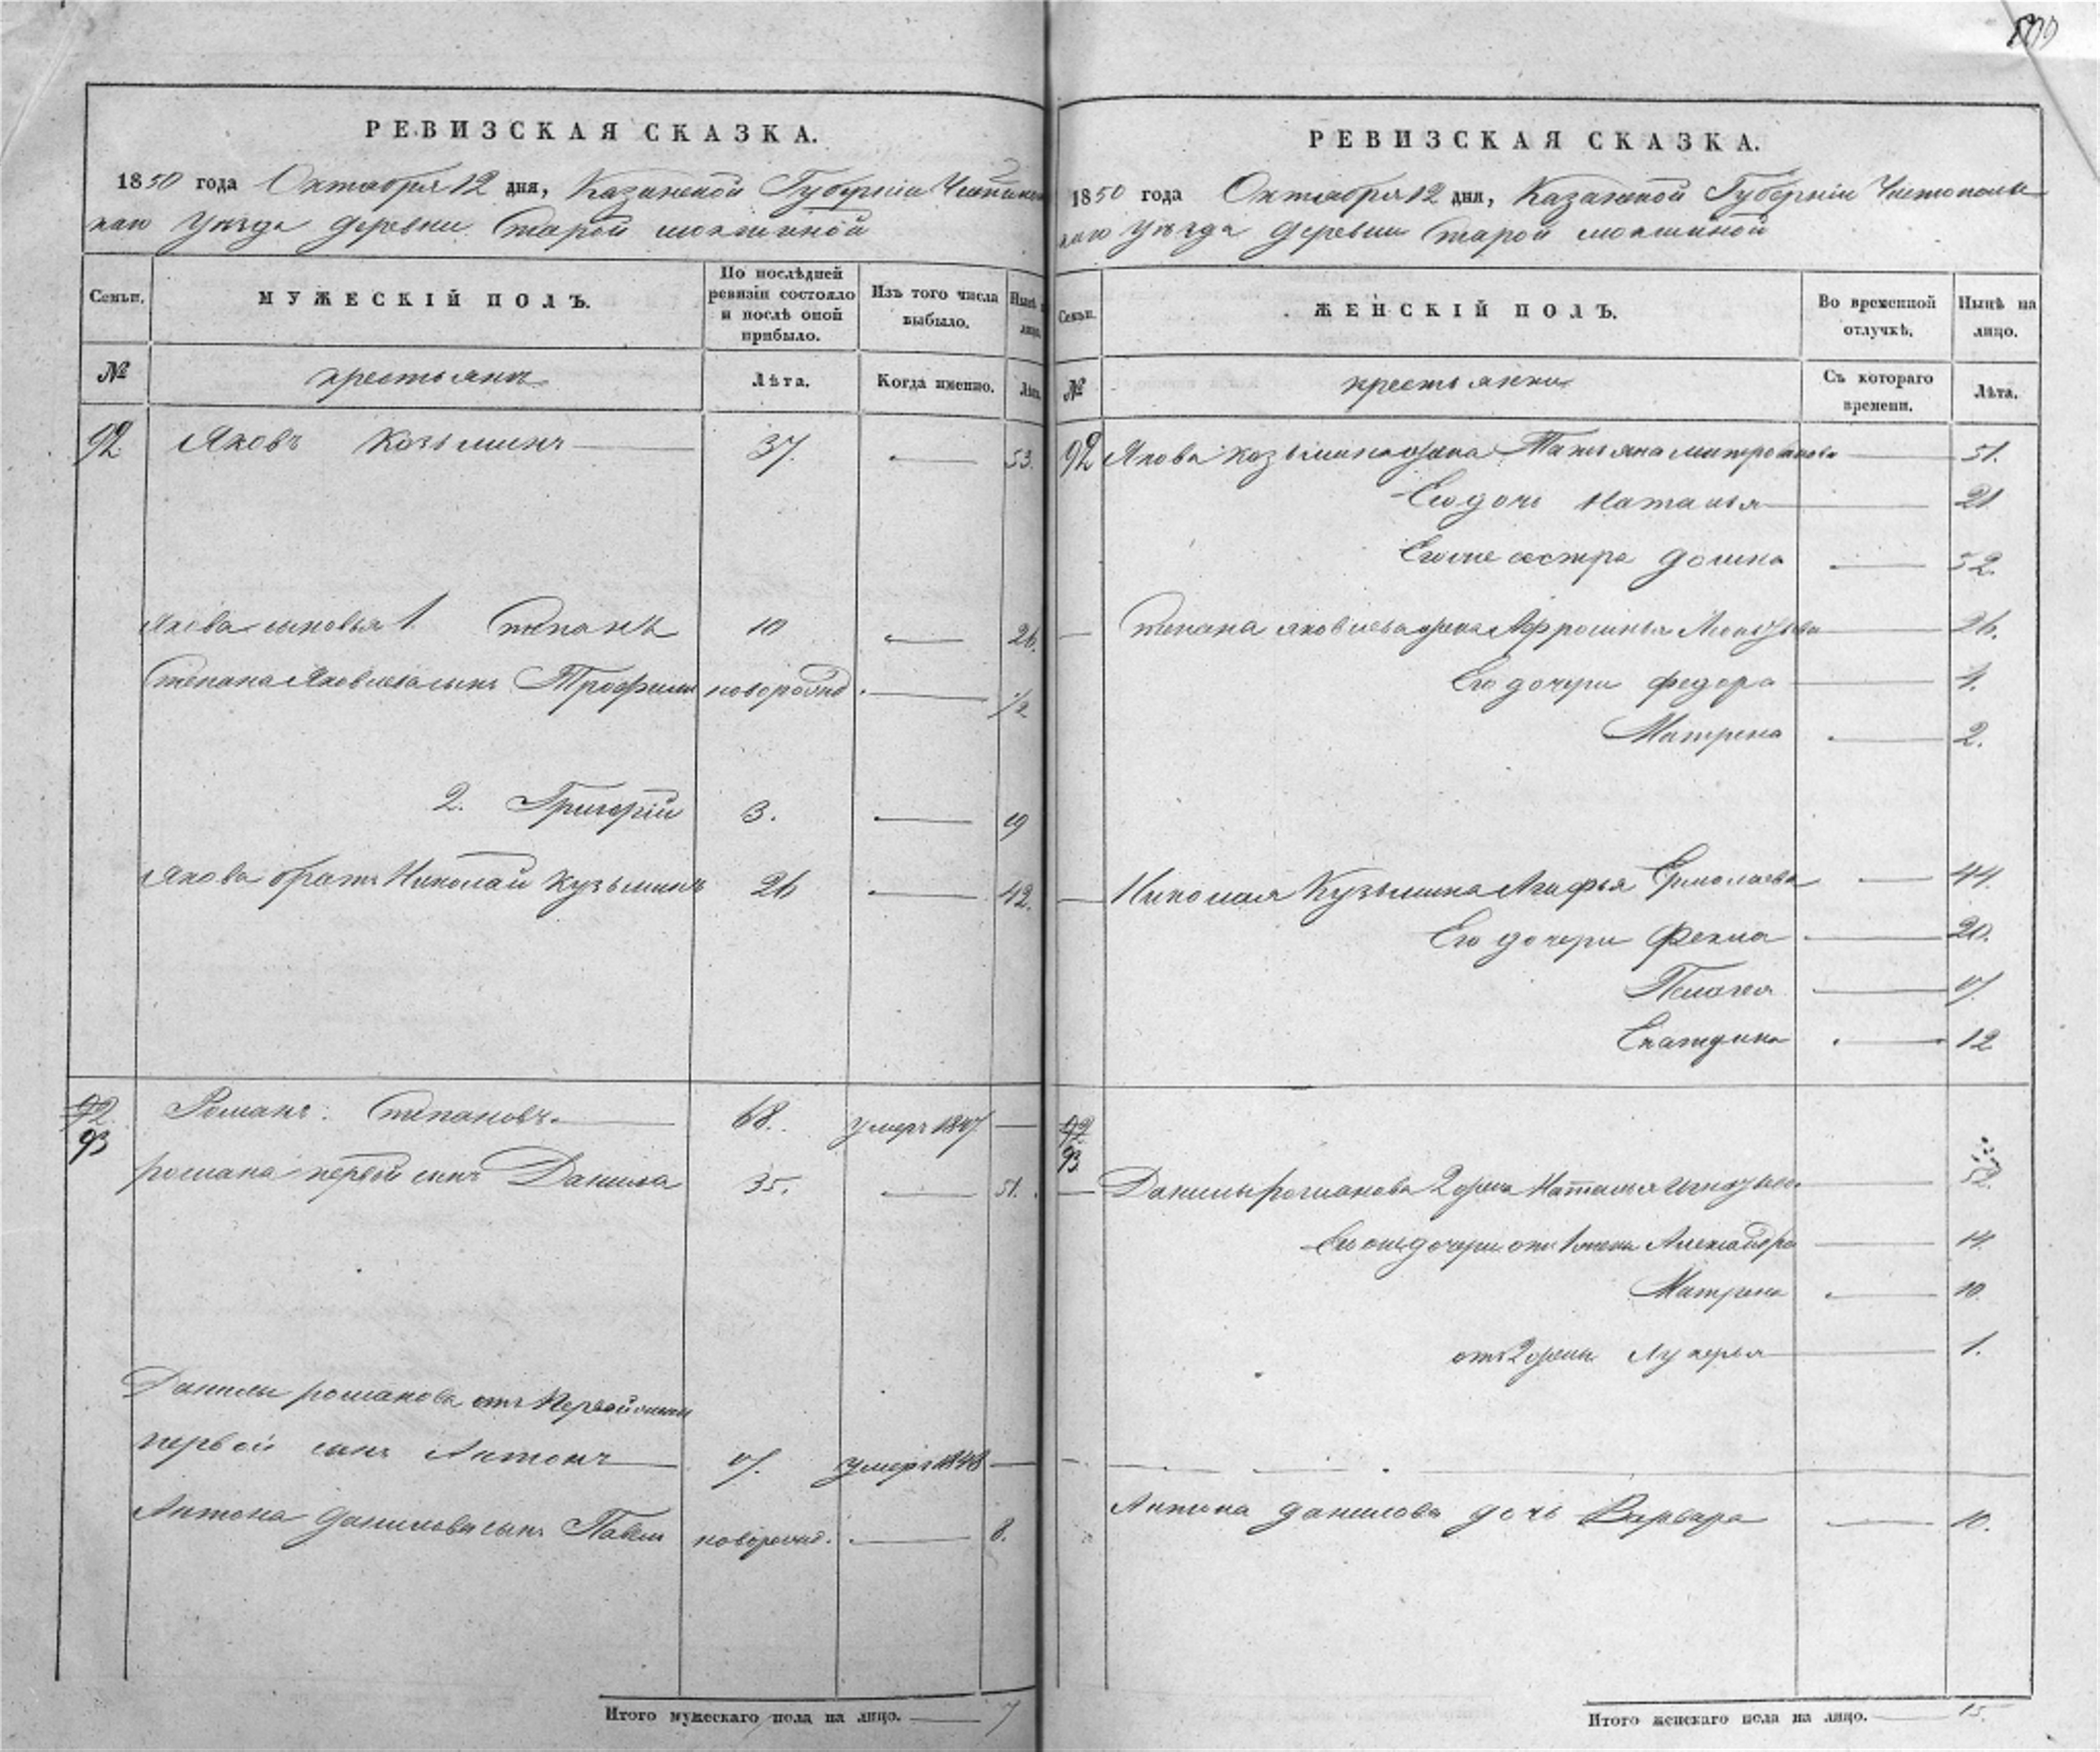 РЕВИЗСКАЯ СКАЗКА.
1850 года Октября 12 дня, Казанской Губернiи Чистополь
каго уѣзда деревни Старой мокшиной
Семьи. МУЖЕСКIЙ ПОЛЪ. По послѣдней ревизiи состояло и послѣ оной прибыло. Изъ того числа выбыло. Нынѣ лицо.
№ крестьянъ Лѣта. Когда именно. Лѣта.
92 Яковъ Козьминъ 37. 53.
Якова сыновья 1. Степанъ 10 26.
Степана Яковлева сынъ Трофимъ новорожд 1/2
2. Григорiй 3. 19
Якова братъ Николай Кузьминъ 26 42.
92. 93 Романъ Степановъ 68. умеръ 1847.
романа первой сынъ Данила 35. 51.
Данилы романова отъ Первой жены
первой сынъ Антонъ 17. умеръ 1848
Антона данилова сынъ Павел новорожд. 8.
Итого мужескаго пола на лицо. 7
РЕВИЗСКАЯ СКАЗКА.
1850 года Октября 12 дня, Казанской Губернiи Чистополь
каго уѣзда деревни Старой мокшиной
Семьи. ЖЕНСКIЙ ПОЛЪ. Во временной отлучкѣ. Нынѣ на лицо.
№ крестьянки Съ котораго времени. Лѣта.
92 Якова козьмина жена Татьяна митрофанова 51.
Его дочь Наталья 21
Его же сестра Домна 52.
Степана яковлева жена Афросинья 26.
Его дочери федора 4.
Матрена 2.
Николая Кузьмина Агафья Ермолаева 44.
Его дочери Фекла 20.
Пелагея 17.
Екатерина 12
92. 93
Данилы романова 2 жена Наталья Игнатьева 52.
Его же дочери отъ 1 жены Александра 14.
Матрена 10
отъ 2 жены Лукерья 1.
Антона данилова дочь Варвара 10.
Итого женскаго пола на лицо. 15.